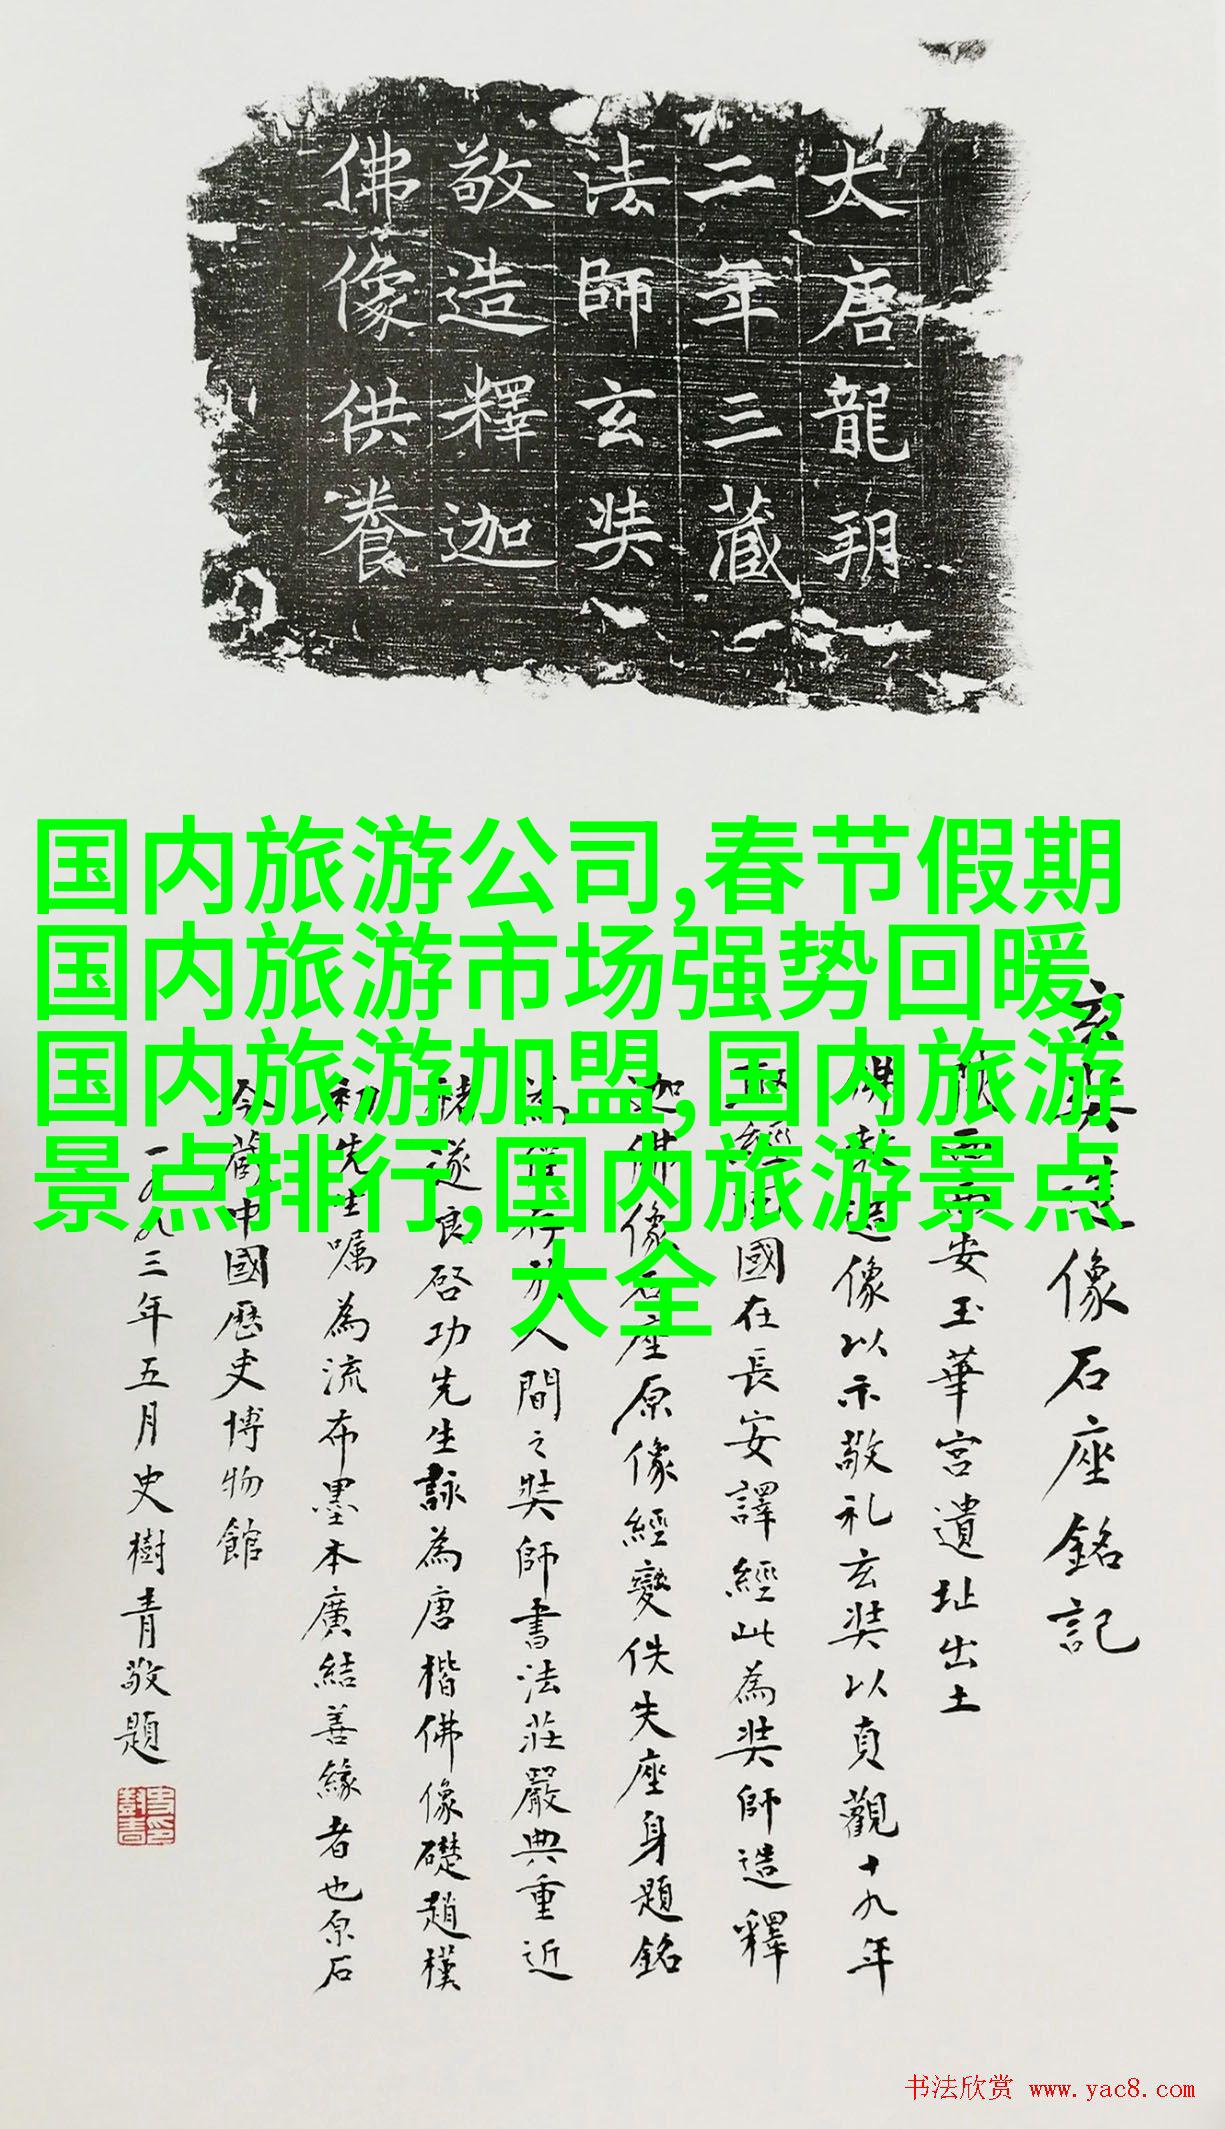 大唐龍朔
二年三藏
法師玄奘
敬造釋迦
佛像供養
国内旅游公司,春节假期
国内旅游市场强势回暖,
国内旅游加盟,国内旅游
景点排行,国内旅游景点
大全
玄奘造像石座銘記
西安玉華宮遺址出土
佛敬造像以示敬礼玄奘以貞觀十九年
取經回國在長安譯經此為奘師造釋
迦佛像石座原像經變佚失座身題銘
為僅存於人間之奘師書法莊嚴典重近
褚遂良啓功先生詠為唐楷佛像礎趙樸
初先生嘱為流布墨本廣結善緣者也原石
今藏中國歷史博物館
一九九三年五月史樹青敬題
書法欣赏 www.yac8.com